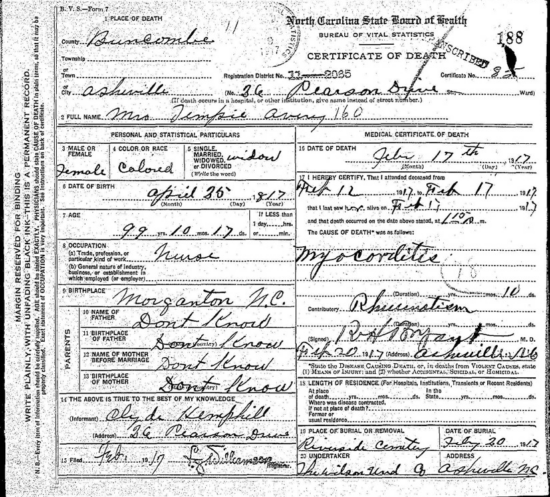 B. V. S.—Form 7
1 PLACE OF DEATH
County Buncombe
Township
or
Town
or
City Asheville
North Carolina State Board of Health
BUREAU OF VITAL STATISTICS
CERTIFICATE OF DEATH
188
TRANSCRIBED
Registration District No. 11-2065 Certificate No. 85
(No. 36 Pearson Drive Ward)
(If death occurs in a hospital, or other institution, give name instead of street number.)
2 FULL NAME Mrs Tempie Avery 160
PERSONAL AND STATISTICAL PARTICULARS
3 MALE OR FEMALE Female
4 COLOR OR RACE Colored
5 SINGLE, MARRIED, WIDOWED, OR DIVORCED (Write the word) widow
6 DATE OF BIRTH
April 25 1817
(Month) (Day) (Year)
7 AGE
99 yrs. 10 mos. 17 ds.
If LESS than
1 day, hrs.
or min.
8 OCCUPATION
(a) Trade, profession, or particular kind of work Nurse
(b) General nature of industry, business, or establishment in which employed (or employer)
9 BIRTHPLACE Morganton N.C.
PARENTS
10 NAME OF FATHER Dont Know
11 BIRTHPLACE OF FATHER Dont Know
12 NAME OF MOTHER BEFORE MARRIAGE Dont Know
13 BIRTHPLACE OF MOTHER Dont Know
14 THE ABOVE IS TRUE TO THE BEST OF MY KNOWLEDGE
(Informant) Clyde Hemphill
(Address) 36 Pearson Drive
15 Filed Feb. 1917
Registrar.
MEDICAL CERTIFICATE OF DEATH
16 DATE OF DEATH
Feb 17th 1917
(Month) (Day) (Year)
17 I HEREBY CERTIFY, That I attended deceased from
Feb 12 1917 to Feb 17 1917
that I last saw her alive on Feb 17 1917
and that death occurred on the date above stated, at
The CAUSE OF DEATH* was as follows:
Myocorditis
(Duration) yrs. mos. 10 ds.
Contributory Rheumatism
(Duration) yrs. mos. ds.
(Signed) R H Bryant M. D.
Feb 20 1917 (Address) Asheville N.C.
*State the DISEASE CAUSING DEATH, or, in deaths from VIOLENT CAUSES, state (1) MEANS OF INJURY; and (2) whether ACCIDENTAL, SUICIDAL, or HOMICIDAL.
18 LENGTH OF RESIDENCE (For Hospitals, Institutions, Transients or Recent Residents)
At place of death yrs. mos. ds. State yrs. mos. ds.
Where was disease contracted, if not at place of death?
Former or usual residence
19 PLACE OF BURIAL OR REMOVAL
Riverside Cemetery
DATE OF BURIAL
Feby 20 1917
20 UNDERTAKER
Asheville NC
MARGIN RESERVED FOR BINDING
WRITE PLAINLY, WITH UNFADING BLACK INK—THIS IS A PERMANENT RECORD.
N. B.—Every item of information should be carefully supplied. AGE should be stated EXACTLY. PHYSICIANS should state CAUSE OF DEATH in plain terms, so that it may be properly classified. Exact statement of OCCUPATION is very important. See instructions on back of certificate.